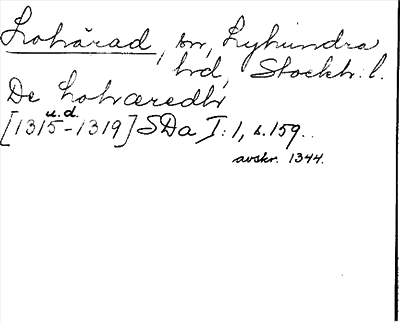 Lohärad, sn, Lyhundra
hd, Stockh. l.
De Lohæredh
u.d.
[1315-1319] SDa I:1, s.159.
avskr. 1344.